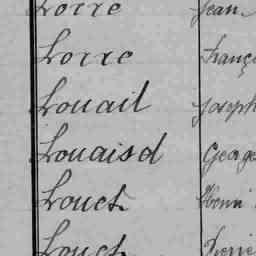 Lorre Jean
Lorre Franç
Louail Joseph
Louaisd George
Louet Henri
Louet Pierre